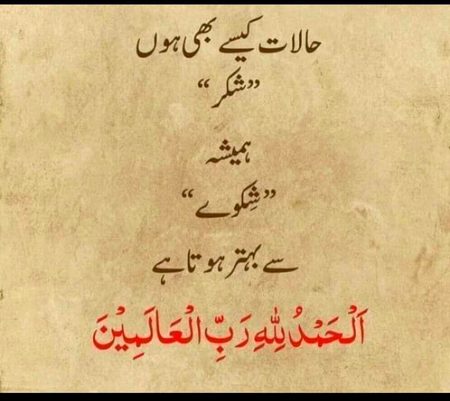 حالات کیسے بھی ہوں
”شکر“
ہمیشہ
”شِکوے“
سے بہتر ہوتا ہے
اَلْحَمْدُلِلّٰهِ رَبِّ الْعَالَمِيْنَ